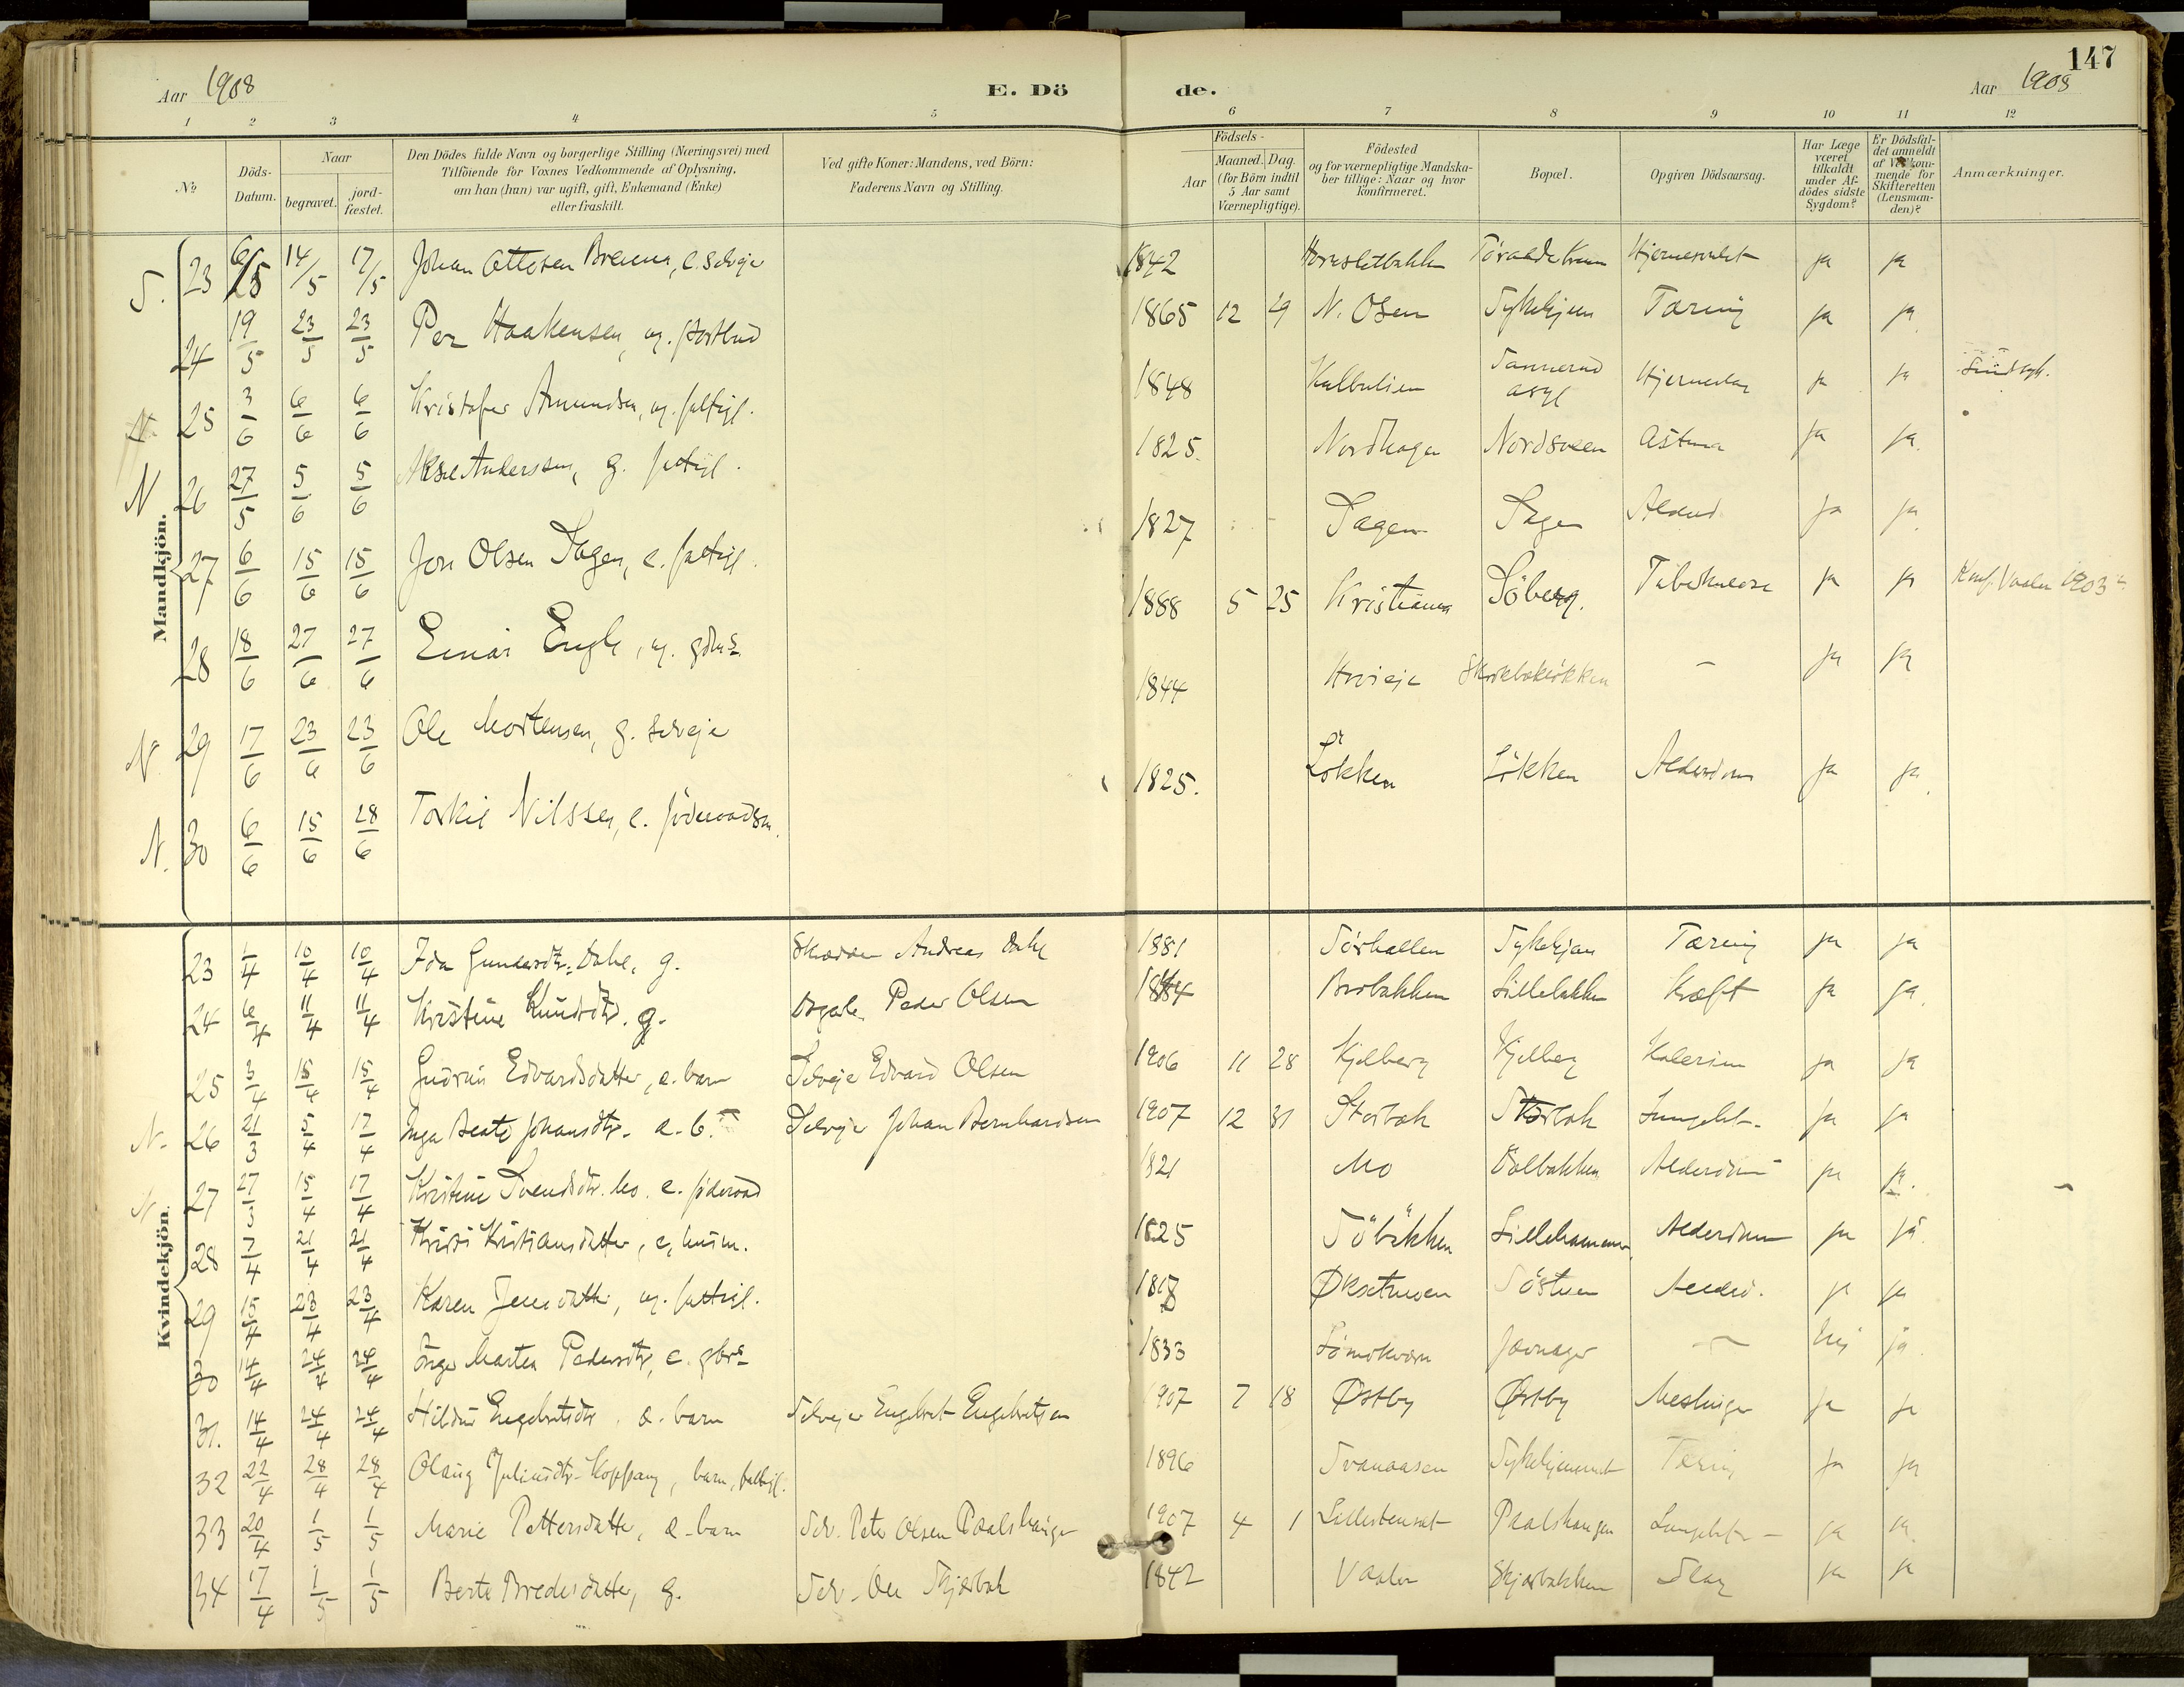 147
Aar 1908 E. Dö de. Aar 1908
1 2 3 4 5 6 7 8 9 10 11 12
№ Döds-Datum. Naar begravet. jord-fæstet. Den Dödes fulde Navn og borgerlige Stilling (Næringsvei) med Tilföiende for Voxnes Vedkommende af Oplysning, om han (hun) var ugift, gift, Enkemand (Enke) eller fraskilt. Ved gifte Koner: Mandens, ved Börn: Faderens Navn og Stilling. Aar Födsels- Maaned. Dag. (for Börn indtil 5 Aar samt Værnepligtige). Födested og for værnepligtige Mandskaber tillige: Naar og hvor konfirmeret. Bopæl. Opgiven Dödsaarsag. Har Læge været tilkaldt under Afdödes sidste Sygdom? Er Dödsfaldet anmeldt af Vedkommende for Skifteretten (Lensmanden)? Anmærkninger.
Mandkjön.
S. 23 6/5 14/5 17/5 Johan Ottosen e. selveje 1842 ja ja
24 19/5 23/5 23/5 Per Haakensen, ug. postbud 1865 12 29 N. Olsen Sykehjem Tæring ja ja
25 3/6 6/6 6/6 Kristofer Amundsen, ug. fattigl. 1848 Sannerud asyl ja ja Sindsyk.
N 26 27/5 5/6 5/6 Anderssen, g. fattigl. 1825 Nordhagen Nordsveen Astma ja ja
27 6/6 15/6 15/6 Jon Olsen Sagen, e. fattigl. 1827 Sagen Sagen Alderd ja ja
28 18/6 27/6 27/6 Einar Engh, ug. 1888 5 25 Kristiania Söberg. Tuberkulose ja ja Konf. Vaaler 1903
N. 29 17/6 23/6 23/6 Ole Mortensen, g. selveje 1844 — ja ja
N. 30 6/6 15/6 28/6 Torkil Nilssen, e. föderaadsm. 1825. Løkken Løkken Alderdom ja ja
Kvindekjön.
23 1/4 10/4 10/4 Ida Gundersdtr. Dahl, g. Andreas Dahl 1881 Sörhallen Sykehjem Tæring ja ja
24 6/4 11/4 11/4 Kristine Knudsdtr. g. Peder Olsen Brobakken Lillebakken Kræft ja ja
25 3/4 15/4 15/4 Gudrun Edvardsdatter, e. barn Selveje Edvard Olsen 1906 11 28 Kjelberg Kjelberg Kolerine ja ja
N. 26 21/3 5/4 17/4 Inga Beate Johansdtr. e. b. Selveje Johan Bernhardsen 1907 12 31 Storbak Storbak Lungebet. ja ja
N 27 27/3 15/4 17/4 Kristine Svendsdtr. Mo. e. föderaad 1821 Mo Alderdom ja ja.
28 7/4 21/4 21/4 Kristiansdatter, e, husm. 1825 Söbakken Lillehammer Alderdom ja ja
29 15/4 23/4 23/4 Karen Jensdatter, ug. fattigl. 1818 Östuen Alderd. ja ja
30 14/4 24/4 24/4 Marten Pedersdtr, e. 1833 — Nej ja
31. 14/4 24/4 24/4 Hildur Engebretsdtr, e. barn Selvejer Engebret Engebretsen 1907 7 18 Østby Østby Meslinger ja ja
32 22/4 28/4 28/4 Olaug Juliusdtr. Koppang, barn, fattigl. 1896 Svanaasen Sykehjemmet Tæring ja ja
33 20/4 1/5 1/5 Marie Pettersdatter, e. barn Selv. Peter Olsen Paalshaugen 1907 4 1 Paalshaugen Lungebet. ja ja
34 17/4 1/5 1/5 Berte Bredesdatter, g. Selv. Ole Skjærbak 1842 Vaaler Skjærbakken Slag ja ja